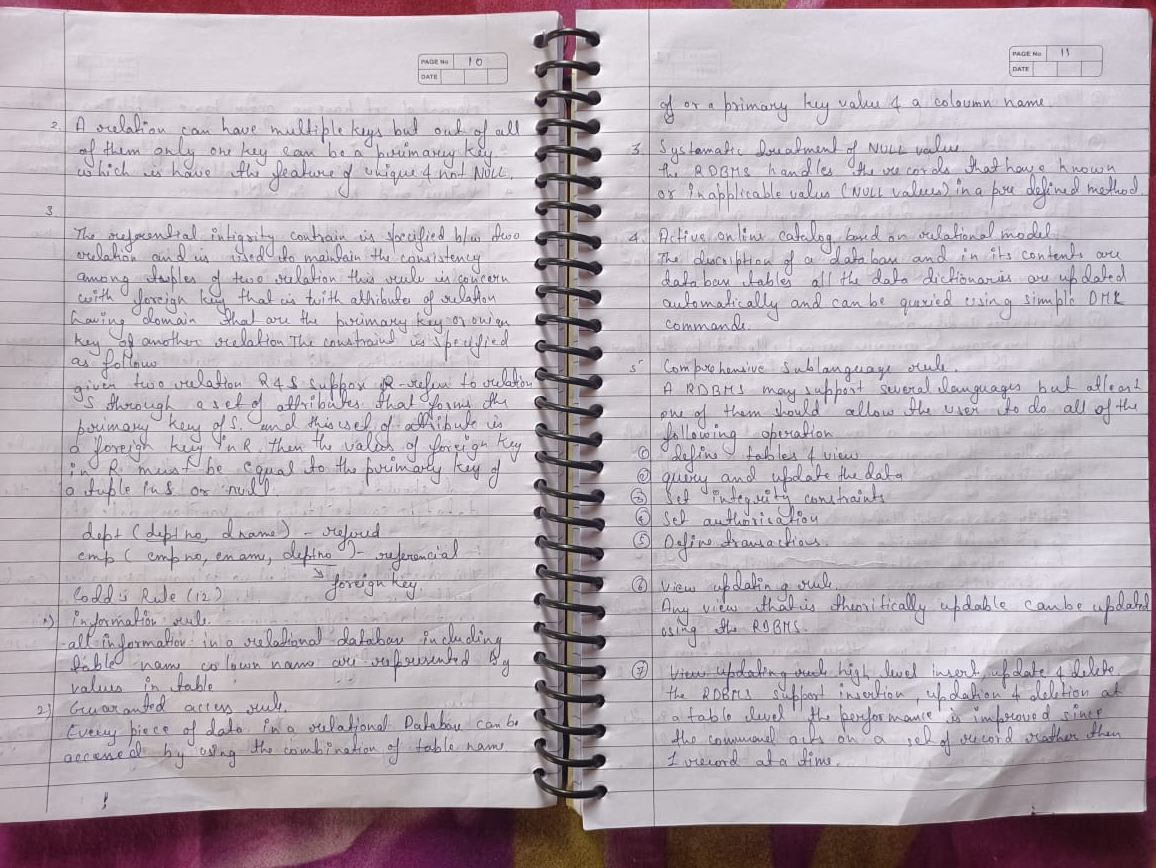 PAGE No 10
DATE
2. A relation can have multiple keys but out of all
of them only one key can be a primary key
which is have the feature of unique & not NULL.
3
The referential intigrity contrain is specified b/w two
relation and is used to maintain the consistency
among tuples of two relation this rule is concern
with foreign key that is with attributes of relation
having domain that are the primary key or
key of another relation The constraint is specified
as follow
given two relation R & S suppose R refers to relation
S through a set of attributes that forms the
primary key of S. and this set of attribute is
a foreign key in R then the value of foreign key
in R must be equal to the primary key of
a tuple in S or null.
dept (dept no, dname) - refered
emp ( emp no, ename, deptno ) - referencial
foreign key.
Codd's Rule (12)
1) information rule.
all information in a relational databas including
table name coloum name are represented by
values in table
2) Guaranted access rule.
Every piece of data in a relational Databas can be
accessed by using the combination of table name
PAGE No 11
DATE
of or a primary key value & a coloumn name.
3. Systematic treatment of NULL value.
the RDBMS handles the records that have known
or inapplicable value (NULL values) in a pre defined method.
4. Active online catalog based on relational model
The discription of a databas and in its contents are
databas tables all the data dictionaries are updated
automatically and can be queried using simple DML
commands.
5 Comprehensive Sublanguage rule.
A RDBMS may support several languages but atleast
one of them should allow the user to do all of the
following operation
① define tables & view
② query and update the data
③ Set integrity constraints
④ Set authorisation
⑤ Define transactions.
⑥ View updating rule
Any view that is theoritically updable can be updated
using the RDBMS.
⑦ View updating rule high level insert, update & delete
the RDBMS support insertion, updation & deletion at
a table level the performance is improved since
the command acts on a set of record rather then
1 record at a time.